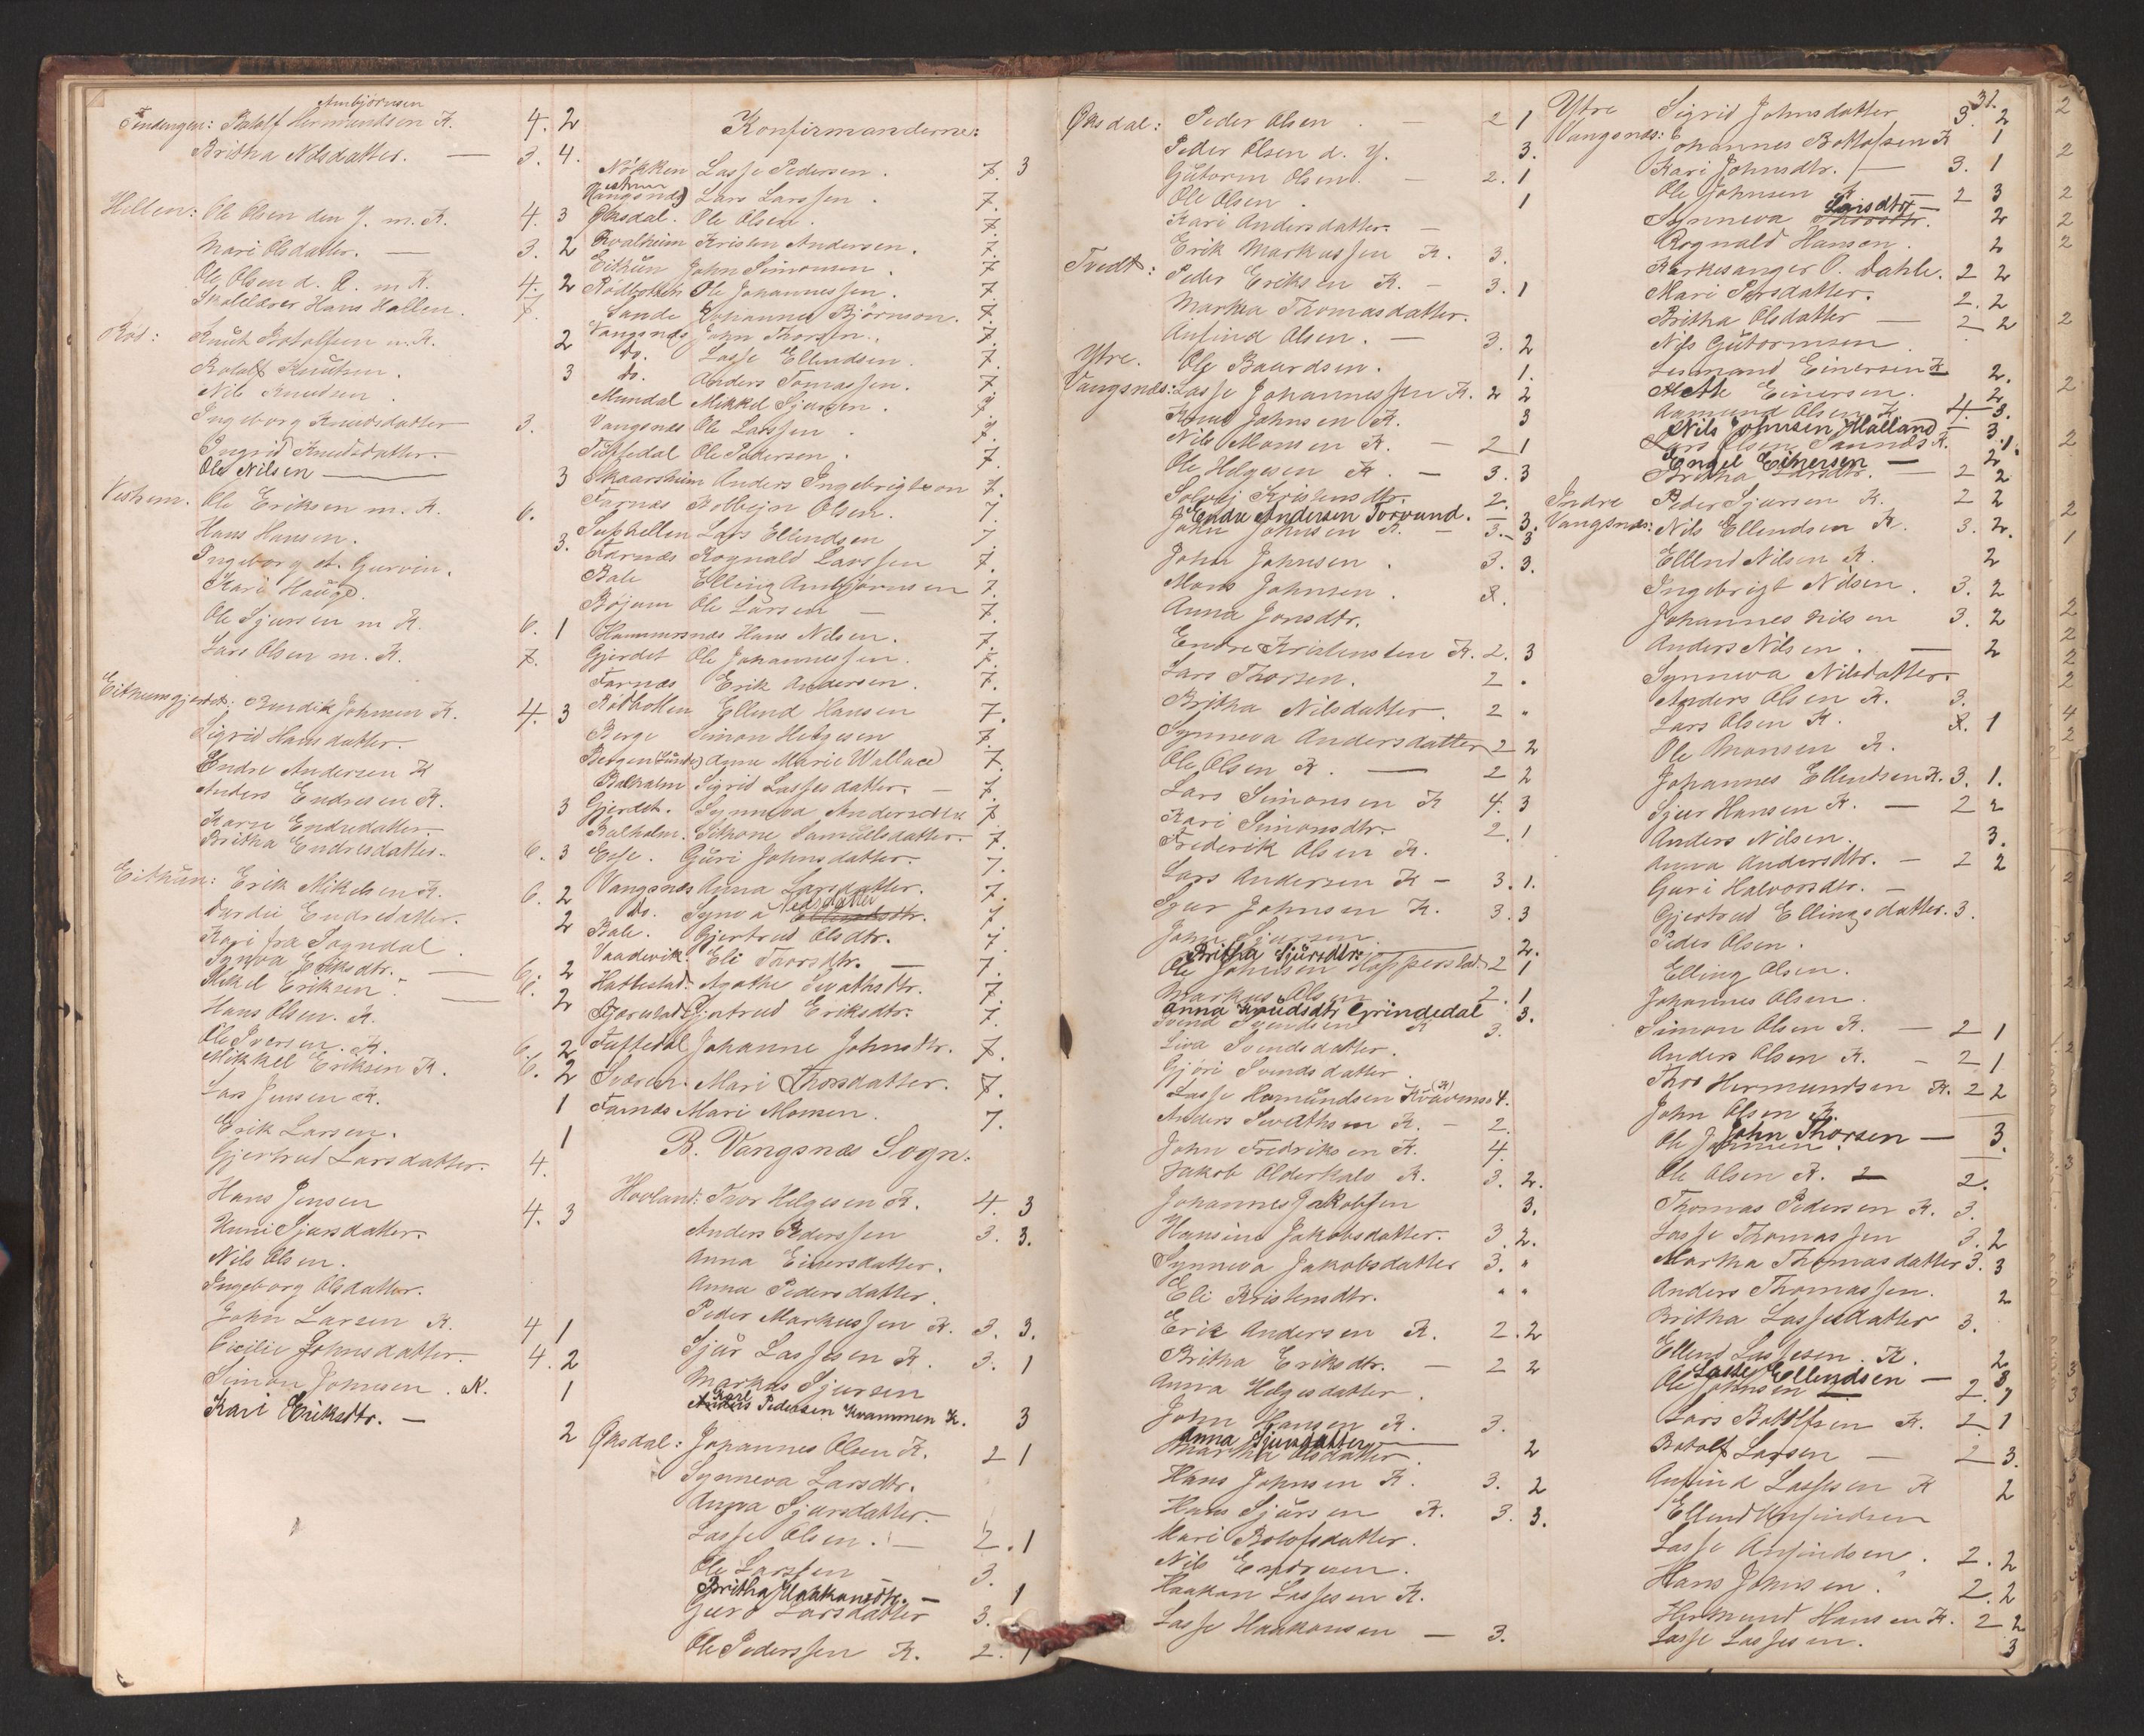 Ambjørnsen
Findengen: Botolf Hermundsen K. 4. 2
Britha Nilsdatter. — 3. 4.
Hellen: Ole Olsen den Y. m. K. 4. 3
Mari Olsdatter. — 3. 2
Ole Olsen d. Æ. m K. 4. 2
Skolelærer Hans Hallen. 7.
Röd: Knut Botolfsen m. K. 2
Botolf Knutsen. 3
Nils Knudsen.
Ingeborg Knudsdatter 3.
Ingrid Knudsdatter.
Ole Nilsen — 3
Vestrem. Ole Eriksen m. K. 6.
Hans Hansen. 3.
Ingeborg st. Gurvin.
Kari Hauge.
Ole Sjursen m K. 6. 1
Lars Olsen m. K. 7.
Eithunsgjerdet: Bendik Johnsen K. 4. 3
Sigrid Hansdatter.
Endre Andersen K
Anders Endresen K. 3
Karn Endredatter.
Britha Endresdatter. 6. 3
Eithun: Erik Mikelsen K. 6. 2
Durdei Endredatter. 2
Kari fra Sogndal.
Synva Eriksdtr. — 6. 2
Mikel Eriksen. — 6. 2
Hans Olsen. K.
Ole Iversen. K. 6. 2
Mikkel Eriksen K. 6. 2
Lars Jensen K. 1
Erik Larsen. 1
Gjertrud Larsdatter. 4.
Hans Jensen 4. 3
Hunni Sjursdatter.
Nils Olsen.
Ingeborg Olsdatter.
John Larsen K. 4 1
Cicilie Johnsdatter. 4. 2
Simon Johnsen. K. 1
Kari Eriksdtr. — 2
Konfirmanderne:
Nökken Lasse Pedersen. 7. 3
Vangsnes Lars Larssen. 7.
Øksdal. Ole Olsen. 7.
Kvalheim Kristen Andersen. 7.
Eithun John Simonsen. 7
Rödbotten Ole Johannessen. 7.
Sande Johannes Björnson. 7.
Vangsnæs John Thorsen. 7.
do. Lasse Ellendsen. 7.
do. Anders Tomassen. 7.
Mundal Mikkel Sjursen. 7.
Vangsnæs Ole Larssen. 7.
Tuftedal Ole Pedersen. 7.
Skaarsheim Anders Ingebrigtson 7.
Farnæs Kolbejn Olsen. 7.
Suphellen Lars Ellendsen 7.
Farnæs Rognald Larssen 7.
Bale Elling Ambjørnsen 7.
Böjum Ole Larsen — 7.
Hammersnæs Hans Nilsen. 7.
Gjerdet Ole Johannessen. 7.
Farnæs Erik Andersen. 7.
Rödbotten Ellend Hansen 7.
Berge Simon Helgesen 7.
Bergen Anna Marie Wallace 7.
Balholm Sigrid Lassesdatter. — 7.
Gjerdet. Synneva Andersdtr 7.
Balholm. Sithone Samuelsdatter. 7.
Esse. Guri Johnsdatter. 7.
Vangsnæs Anna Larsdatter. 7.
Nilsdatter
do. Synva Ellendsdtr. 7.
Bale. Gjertrud Olsdtr. 7
Vaadevik. Eli Thorsdtr. — 7.
Hattestad. Agathe Ivathsdtr. 7.
Gjertrud Eriksdtr. 7.
Tuftedal Johanne Johnsdtr. 7.
Sværen. Mari Thorsdatter. 7.
Farnæs Mari Monsen. 7.
B. Vangsnæs Sogn.
Hovland: Thor Helgesen K. 4. 3
Anders Pederssen 3. 3.
Anna Einersdatter.
Anna Pedersdatter.
Peder Markussen K. 3. 3.
Sjur Lassesen K. 3. 1
Markus Sjursen
Karl
Anders Pedersen Kvammen K. 3
Øksdal: Johannes Olsen K. 2 1
Synneva Larsdtr.
Anna Sjursdatter.
Lasse Olsen. — 2. 1
Ole Larssen 3.
Britha Haakonsdtr. — 1
Guro Larsdatter 3.
Ole Pederssen K. 2. 1
Øksdal: Peder Olsen. — 2 1
Peder Olsen d. Y. 3.
Gutorm Olsen. — 2. 1
Ole Olsen. 1
Kari Andersdatter. —
Erik Markussen K. 3.
Tvedt: Peder Eriksen K. — 3. 1
Martha Thomasdatter.
Anfind Olsen. — 3. 2
Ytre. Ole Baardsen. 1.
Vangsnæs: Lasse Johannessen K. 2 2
Knut Johnsen K. 3
Nils Monsen K. — 2 1
Ole Helgesen K. — 3. 3
Solvej Kristensdtr. 2.
Endre Andersen Torvund. — 3.
John Johnsen K. — 3. 3
John Johnsen. 3. 3.
Mons Johnsen. 3.
Anna Jonsdtr.
Endre Kristensen K. 2. 3
Lars Thorsen. 2 "
Britha Nilsdatter. 2 "
Synneva Andersdatter 2 2
Ole Olsen K. — 2 2
Lars Simonsen K 4. 3
Kari Simonsdtr. 2. 1
Frederik Olsen K.
Lars Andersen K — 3. 1.
Sjur Johnsen K. 3. 3
John Sjursen.
Britha Sjursdtr. — 2.
Ole Johnsen Hopperstad. 2 1
Markus Olsen 2. 1
Anna Knudsdtr Grindedal 3.
Svend Svendsen K 3.
Liva Svendsdatter.
Gjöri Svendsdatter.
Lasse Hermundsen Kvamme (K) 4.
Anders Ivathsen K. — 2.
John Fredriksen K. 4.
Jakob Olderhals K. 3. 2.
Johannes Jakobsen 3.
Hansine Jakobsdatter. 3. 2.
Synneva Jakobsdatter 3. "
Eli Kristensdtr. " "
Erik Andersen K. 2. 2
Britha Eriksdtr. — 2 2
Anna Helgesdatter.
John Hansen K. 3.
Anna Sjursdatter — 2
Martha Olsdatter.
Hans Johnsen K. 3. 2
Hans Sjursen K. 3. 3.
Mari Botolfsdatter.
Nils Endresen.
Haakon Lassesen K.
Lasse Haakonsen — 3.
31.
Ytre Sigrid Johnsdatter 3. 2
Vangsnæs: Johannes Bottolfsen K 1
Kari Johnsdtr. — 3. 1
Ole Johnsen K 2 3
Larsdtr —
Synneva Thorsdtr. 2
Rognald Hansen. 2
Kirkesanger O. Dahle. 2 2
Mari Persdatter. 2. 2
Britha Olsdatter — 2 2
Nils Gutormsen.
Lesmand Einersen K 2.
Einersen. 2
Aamund Olsen K. 4. 3.
Nils Johnsen Halland — 3.
Lars Olsen K. 1.
Engel Einersen — 2
Britha — 2 2
Indre Peder Sjursen K. 2 2
Vangsnæs: Nils Ellendsen K. 3. 2.
Ellend Nilsen K. 2
Ingebrigt Nilsen. 3. 2
Johannes Nilsen 3. 2
Anders Nilsen. — 2
Synneva Nilsdatter.
Anders Olsen K. 3.
Lars Olsen K. 3. 1
Ole Monsen K.
Johannes Ellendsen K. 3. 1.
Sjur Hansen K. — 2 2
Anders Nilsen. 3.
Anna Andersdtr. — 2 2
Guri Halvorsdtr. —
Gjertrud Ellingsdatter. 3.
Peder Olsen.
Elling Olsen.
Johannes Olsen.
Simon Olsen K. — 2 1
Anders Olsen K. — 2 1
Thor Hermundsen K. 2 2
John Olsen K.
John Thorsen — 3.
Ole Johnsen.
Ole Olsen K. 2 2.
Thomas Pedersen K. 3.
Lasse Thomassen 3. 2
Martha Thomasdatter 3. 3
Anders Thomassen. 2
Britha Lassesdatter 3.
Ellend Lassesen. K. 2
Lasse Ellendsen — 3
Ole Johnsen — 2. 1
Lars Botolfsen K. 2 1
Botolf Larsen — 2 3.
Anfind Lassesen K 2
Ellend Anfindsen
Lasse Anfindsen. 2. 2
Hans Johnsen. 2. 2
Hermund Hansen K. 2 2
Lasse Lassesen. 3